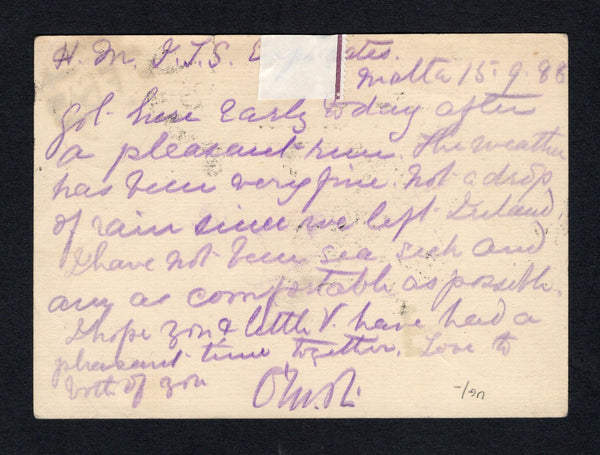 H. M. I. T. S. E
Malta 15. 9. 88
Got here early today after
a pleasant run. The weather
has been very fine. Not a drop
of rain since we left Ireland.
I have not been sea sick and
am as comfortable as possible.
I hope you & little V. have had a
pleasant time together. Love to
both of you